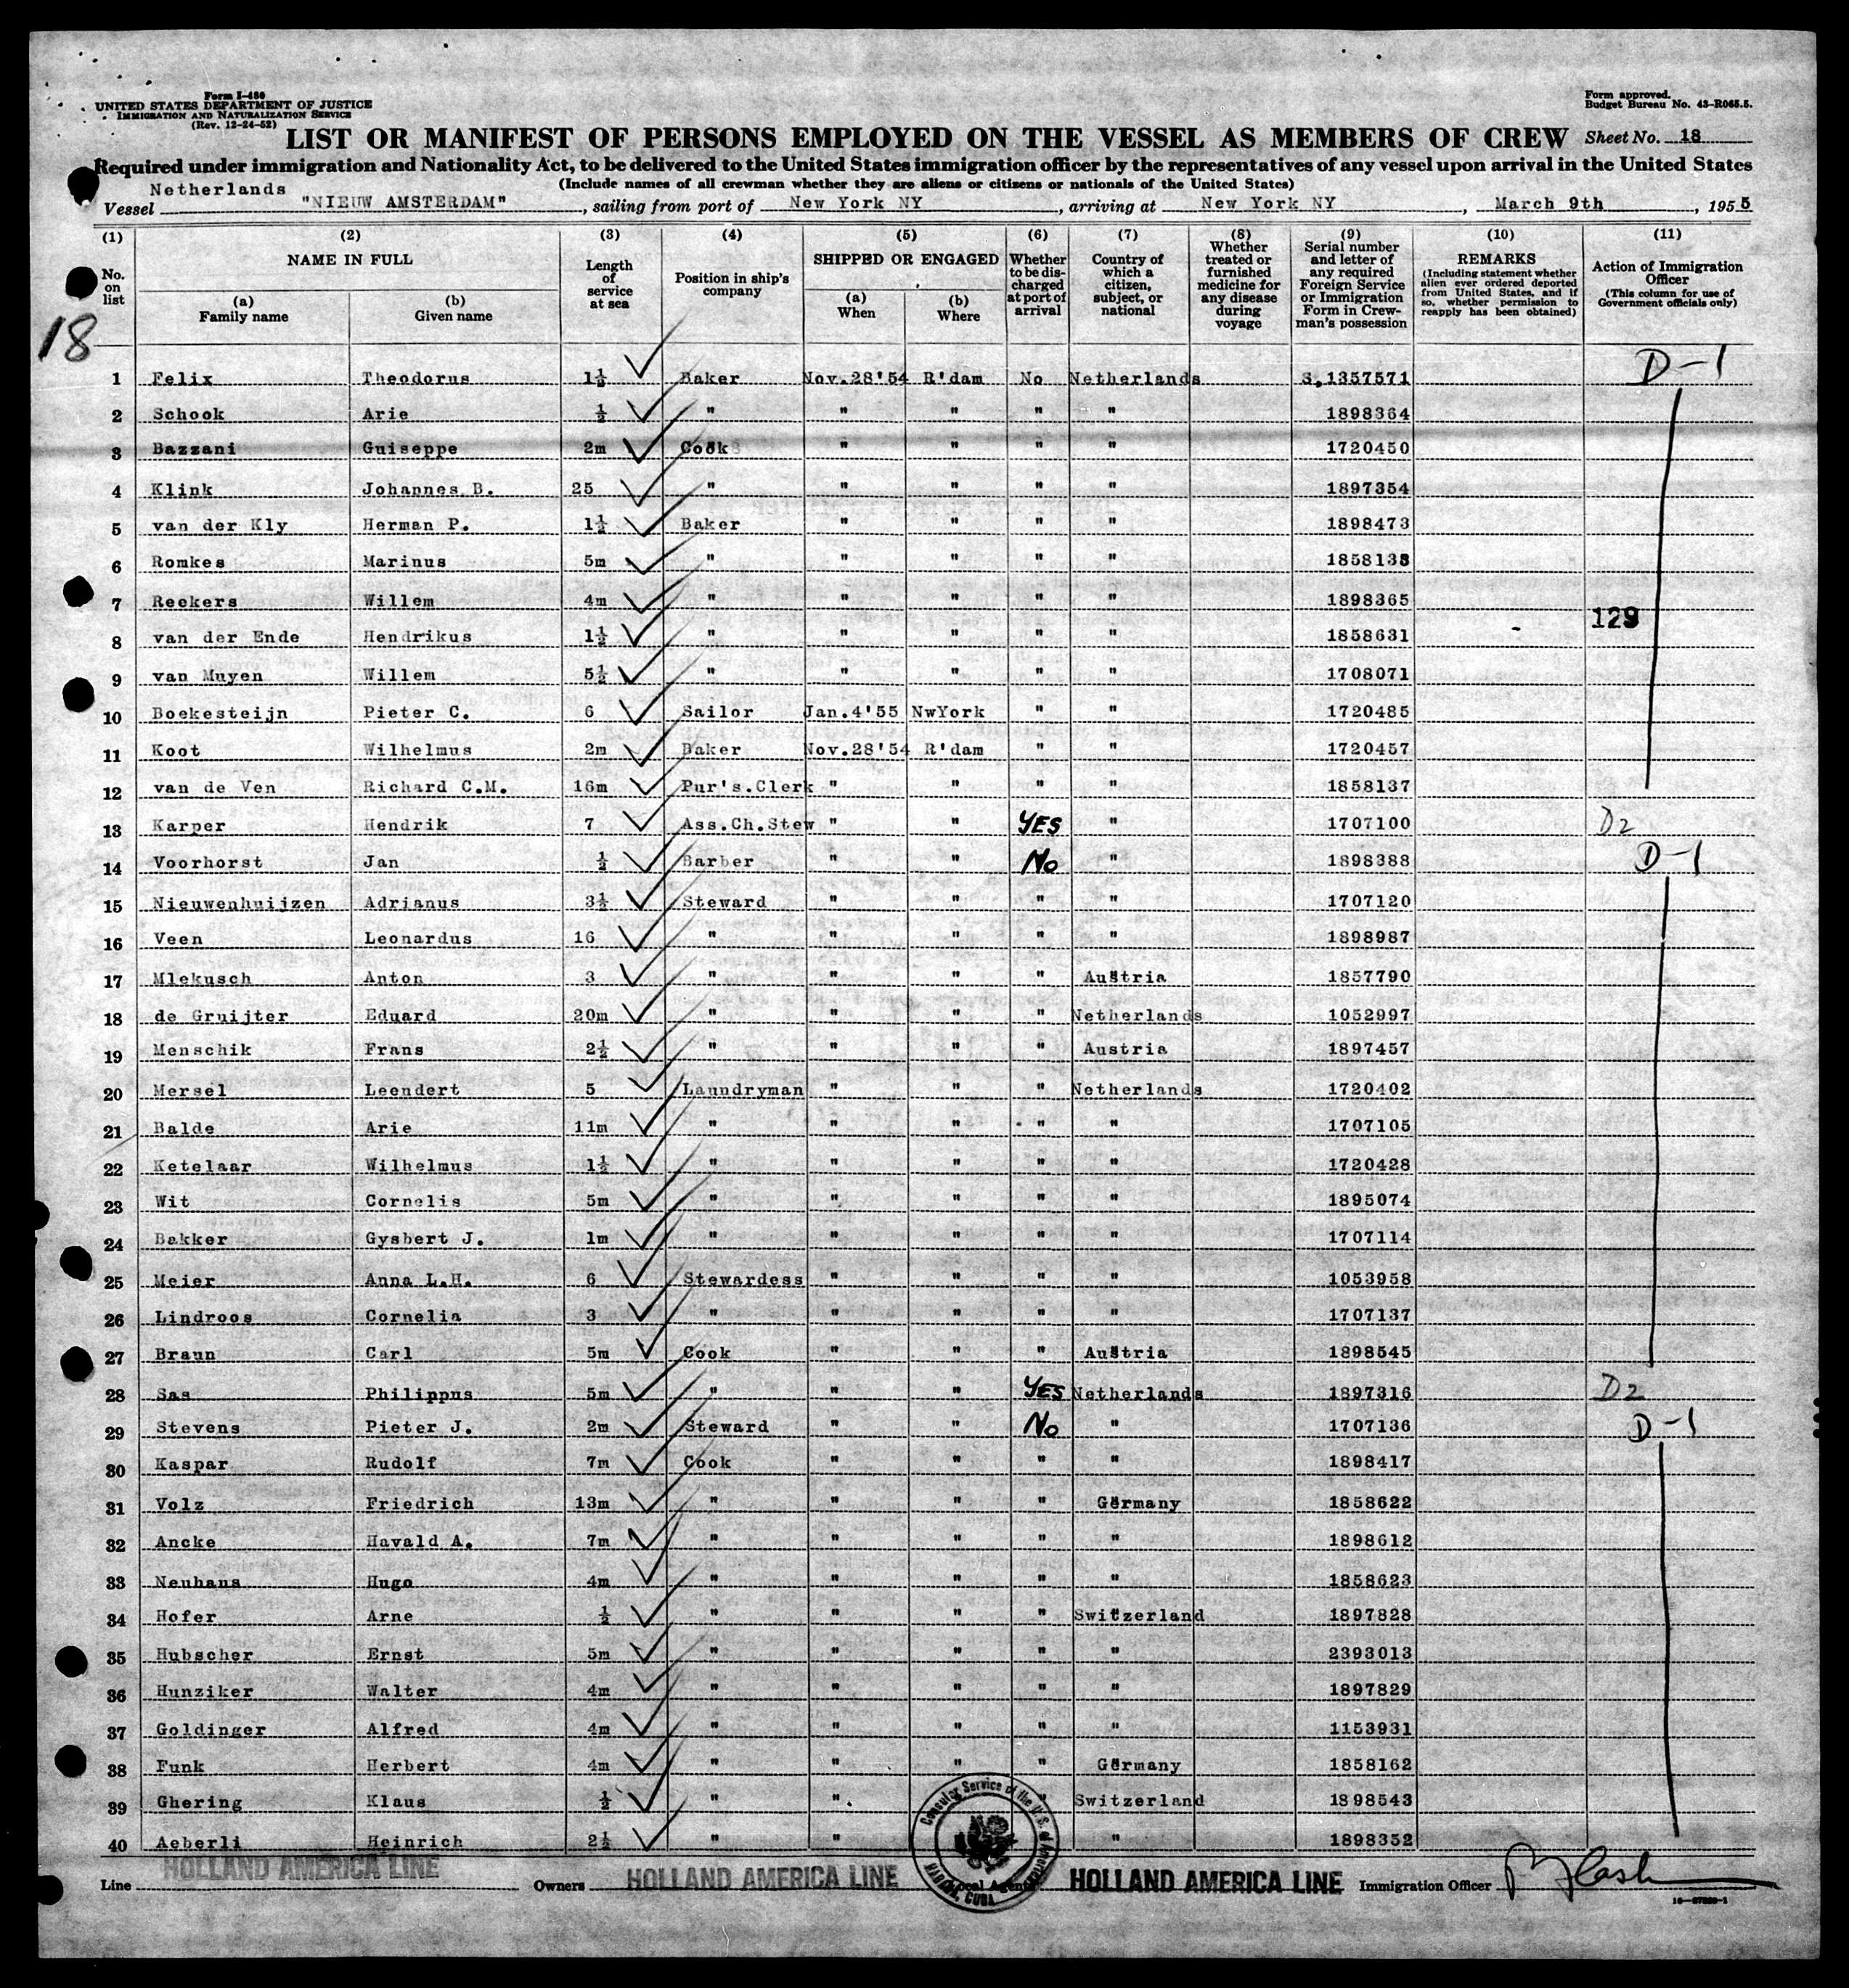 Form I-480
UNITED STATES DEPARTMENT OF JUSTICE
IMMIGRATION AND NATURALIZATION SERVICE
(Rev. 12-24-52)
Form approved.
Budget Bureau No. 43-R065.5.
LIST OR MANIFEST OF PERSONS EMPLOYED ON THE VESSEL AS MEMBERS OF CREW Sheet No. 18
Required under immigration and Nationality Act, to be delivered to the United States immigration officer by the representatives of any vessel upon arrival in the United States
(Include names of all crewman whether they are aliens or citizens or nationals of the United States)
Netherlands
Vessel "NIEUW AMSTERDAM", sailing from port of New York NY, arriving at New York NY, March 9th, 1955
(1) (2) (3) (4) (5) (6) (7) (8) (9) (10) (11)
No. on list
NAME IN FULL
(a) Family name
(b) Given name
Length of service at sea
Position in ship's company
SHIPPED OR ENGAGED
(a) When
(b) Where
Whether to be discharged at port of arrival
Country of which a citizen, subject, or national
Whether treated or furnished medicine for any disease during voyage
Serial number and letter of any required Foreign Service or Immigration Form in Crewman's possession
REMARKS
(Including statement whether alien ever ordered deported from United States, and if so, whether permission to reapply has been obtained)
Action of Immigration Officer
(This column for use of Government officials only)
18
1 Felix Theodorus 1½ Baker Nov.28'54 R'dam No Netherlands S.1357571 D-1
2 Schook Arie ½ " " " " " 1898364
3 Bazzani Guiseppe 2m Cook " " " " 1720450
4 Klink Johannes B. 25 " " " " " 1897354
5 van der Kly Herman P. 1½ Baker " " " " 1898473
6 Romkes Marinus 5m " " " " " 1858138
7 Reekers Willem 4m " " " " " 1898365
129
8 van der Ende Hendrikus 1½ " " " " " 1858631
9 van Muyen Willem 5½ " " " " " 1708071
10 Boekesteijn Pieter C. 6 Sailor Jan.4'55 NwYork " " 1720485
11 Koot Wilhelmus 2m Baker Nov.28'54 R'dam " " 1720457
12 van de Ven Richard C.M. 16m Pur's.Clerk " " " " 1858137
13 Karper Hendrik 7 Ass.Ch.Stew " " YES " 1707100 D2
14 Voorhorst Jan ½ Barber " " No " 1898388 D-1
15 Nieuwenhuijzen Adrianus 3½ Steward " " " " 1707120
16 Veen Leonardus 16 " " " " " 1898987
17 Mlekusch Anton 3 " " " " Austria 1857790
18 de Gruijter Eduard 20m " " " " Netherlands 1052997
19 Menschik Frans 2½ " " " " Austria 1897457
20 Mersel Leendert 5 Laundryman " " " Netherlands 1720402
21 Balde Arie 11m " " " " " 1707105
22 Ketelaar Wilhelmus 1½ " " " " " 1720428
23 Wit Cornelis 5m " " " " " 1895074
24 Bakker Gysbert J. 1m " " " " " 1707114
25 Meier Anna L.H. 6 Stewardess " " " " 1053958
26 Lindroos Cornelia 3 " " " " " 1707137
27 Braun Carl 5m Cook " " " Austria 1898545
28 Sas Philippus 5m " " " YES Netherlands 1897316 D2
29 Stevens Pieter J. 2m Steward " " No " 1707136 D-1
30 Kaspar Rudolf 7m Cook " " " " 1898417
31 Volz Friedrich 13m " " " " Germany 1858622
32 Ancke Havald A. 7m " " " " " 1898612
33 Neuhaus Hugo 4m " " " " " 1858623
34 Hofer Arne ½ " " " " Switzerland 1897828
35 Hubscher Ernst 5m " " " " " 2393013
36 Hunziker Walter 4m " " " " " 1897829
37 Goldinger Alfred 4m " " " " " 1153931
38 Funk Herbert 4m " " " " Germany 1858162
39 Ghering Klaus ½ " " " Switzerland 1898543
40 Aeberli Heinrich 2½ " " " 1898352
Consular Service of the U.S. of America
HAVANA, CUBA
Line HOLLAND AMERICA LINE Owners HOLLAND AMERICA LINE Local Agents HOLLAND AMERICA LINE Immigration Officer